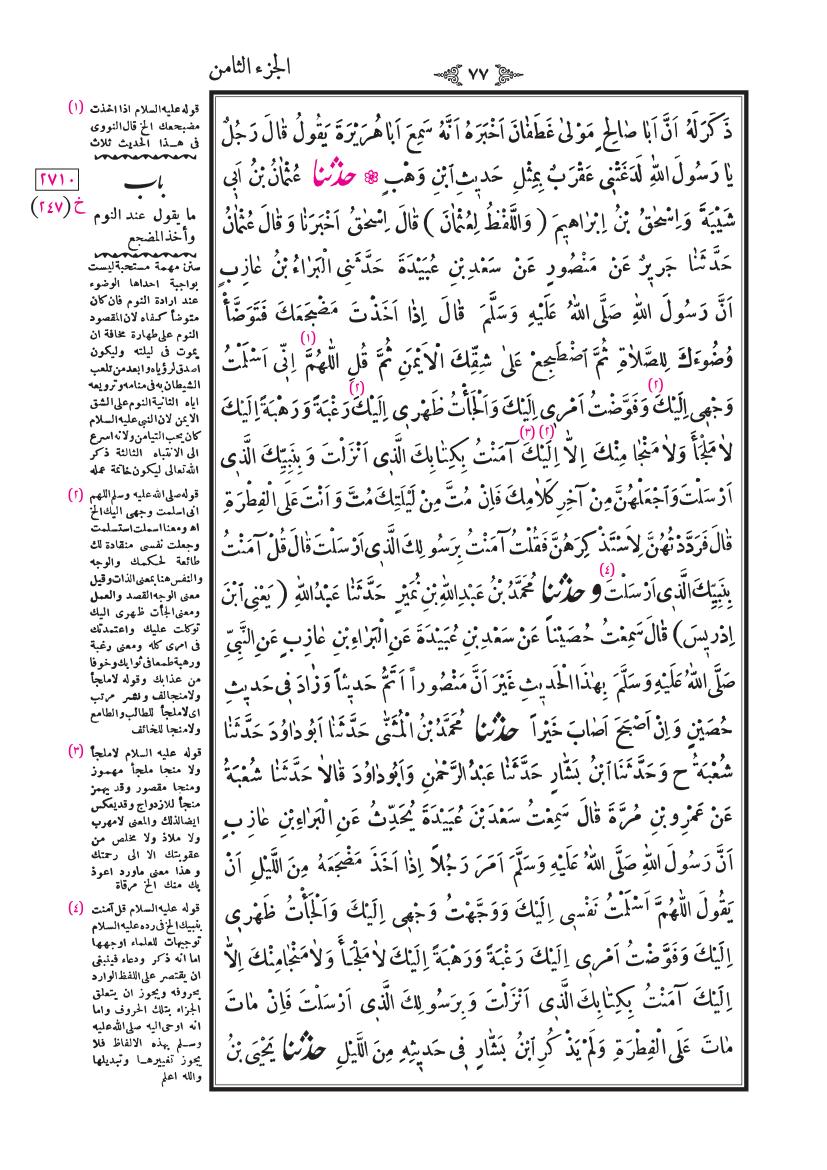 الجزء الثامن
٧٧
ذَكَرَ لَهُ اَنَّ اَبَا صَالِحٍ مَوْلىٰ غَطَفَانَ اَخْبَرَهُ اَنَّهُ سَمِعَ اَبَا هُرَيْرَةَ يَقُولُ قَالَ رَجُلٌ
يَا رَسُولَ اللهِ لَدَغَتْنِى عَقْرَبٌ بِمِثْلِ حَدِيثِ ابْنِ وَهْبٍ ❁ حدثنا عُثْمَانُ بْنُ اَبِى
شَيْبَةَ وَاِسْحٰقُ بْنُ اِبْرَاهِيمَ ( وَاللَّفْظُ لِعُثْمَانَ ) قَالَ اِسْحٰقُ اَخْبَرَنَا وَقَالَ عُثْمَانُ
حَدَّثَنَا جَرِيرٌ عَنْ مَنْصُورٍ عَنْ سَعْدِ بْنِ عُبَيْدَةَ حَدَّثَنِى الْبَرَاءُ بْنُ عَازِبٍ
اَنَّ رَسُولَ اللهِ صَلَّى اللهُ عَلَيْهِ وَسَلَّمَ قَالَ اِذَا اَخَذْتَ مَضْجَعَكَ فَتَوَضَّأْ
وُضُوءَكَ لِلصَّلَاةِ ثُمَّ اضْطَجِعْ عَلىٰ شِقِّكَ الْاَيْمَنِ ثُمَّ قُلِ (١) اللّٰهُمَّ اِنِّى اَسْلَمْتُ
وَجْهِى اِلَيْكَ (٢) وَفَوَّضْتُ اَمْرِى اِلَيْكَ وَالْجَأْتُ ظَهْرِى اِلَيْكَ (٢) رَغْبَةً وَرَهْبَةً اِلَيْكَ
لَا مَلْجَأَ وَلَا مَنْجَا مِنْكَ اِلَّا اِلَيْكَ (٢) (٣) آمَنْتُ بِكِتَابِكَ الَّذِى اَنْزَلْتَ وَبِنَبِيِّكَ الَّذِى
اَرْسَلْتَ وَاجْعَلْهُنَّ مِنْ آخِرِ كَلَامِكَ فَاِنْ مُتَّ مِنْ لَيْلَتِكَ مُتَّ وَاَنْتَ عَلَى الْفِطْرَةِ
قَالَ فَرَدَّدْتُهُنَّ لِاَسْتَذْكِرَهُنَّ فَقُلْتُ آمَنْتُ بِرَسُولِكَ الَّذِى اَرْسَلْتَ قَالَ قُلْ آمَنْتُ
بِنَبِيِّكَ الَّذِى اَرْسَلْتَ (٤) وحدثنا مُحَمَّدُ بْنُ عَبْدِ اللهِ بْنِ نُمَيْرٍ حَدَّثَنَا عَبْدُ اللهِ ( يَعْنِى ابْنَ
اِدْرِيسَ ) قَالَ سَمِعْتُ حُصَيْنًا عَنْ سَعْدِ بْنِ عُبَيْدَةَ عَنِ الْبَرَاءِ بْنِ عَازِبٍ عَنِ النَّبِيِّ
صَلَّى اللهُ عَلَيْهِ وَسَلَّمَ بِهٰذَا الْحَدِيثِ غَيْرَ اَنَّ مَنْصُوراً اَتَمُّ حَدِيثاً وَزَادَ فِى حَدِيثِ
حُصَيْنٍ وَاِنْ اَصْبَحَ اَصَابَ خَيْراً حدثنا مُحَمَّدُ بْنُ الْمُثَنّٰى حَدَّثَنَا اَبُو دَاوُدَ حَدَّثَنَا
شُعْبَةُ ح وَحَدَّثَنَا ابْنُ بَشَّارٍ حَدَّثَنَا عَبْدُ الرَّحْمٰنِ وَاَبُو دَاوُدَ قَالَا حَدَّثَنَا شُعْبَةُ
عَنْ عَمْرِو بْنِ مُرَّةَ قَالَ سَمِعْتُ سَعْدَ بْنَ عُبَيْدَةَ يُحَدِّثُ عَنِ الْبَرَاءِ بْنِ عَازِبٍ
اَنَّ رَسُولَ اللهِ صَلَّى اللهُ عَلَيْهِ وَسَلَّمَ اَمَرَ رَجُلاً اِذَا اَخَذَ مَضْجَعَهُ مِنَ اللَّيْلِ اَنْ
يَقُولَ اللّٰهُمَّ اَسْلَمْتُ نَفْسِى اِلَيْكَ وَوَجَّهْتُ وَجْهِى اِلَيْكَ وَالْجَأْتُ ظَهْرِى
اِلَيْكَ وَفَوَّضْتُ اَمْرِى اِلَيْكَ رَغْبَةً وَرَهْبَةً اِلَيْكَ لَا مَلْجَأَ وَلَا مَنْجَا مِنْكَ اِلَّا
اِلَيْكَ آمَنْتُ بِكِتَابِكَ الَّذِى اَنْزَلْتَ وَبِرَسُولِكَ الَّذِى اَرْسَلْتَ فَاِنْ مَاتَ
مَاتَ عَلَى الْفِطْرَةِ وَلَمْ يَذْكُرِ ابْنُ بَشَّارٍ فِى حَدِيثِهِ مِنَ اللَّيْلِ حدثنا يَحْيَى بْنُ
(١) قوله عليه السلام اذا اخذت
مضجعك الخ قال النووى
فى هذا الحديث ثلاث
٢٧١٠
خ (٢٤٧)
باب
ما يقول عند النوم
وأخذ المضجع
سنن مهمة مستحبة ليست
بواجبة احداها الوضوء
عند ارادة النوم فان كان
متوضأ كفاه لان المقصود
النوم على طهارة مخافة ان
يموت فى ليلته وليكون
اصدق لرؤياه وابعد من تلعب
الشيطان به فى منامه وترويعه
اياه الثانية النوم على الشق
الايمن لان النبى عليه السلام
كان يحب التيامن ولانه اسرع
الى الانتباه الثالثة ذكر
الله تعالى ليكون خاتمة عمله
(٢) قوله صلى الله عليه وسلم اللهم
انى اسلمت وجهى اليك الخ
اه ومعنا اسلمت استسلمت
وجعلت نفسى منقادة لك
طائعة لحكمك والوجه
والنفس هنا بمعنى الذات وقيل
معنى الوجه القصد والعمل
ومعنى الجأت ظهرى اليك
توكلت عليك واعتمدتك
فى امرى كله ومعنى رغبة
ورهبة طمعا فى ثوابك وخوفا
من عذابك وقوله لا ملجأ
ولا منجا لف ونشر مرتب
اى لا ملجأ للطالب والطامع
ولا منجا للخائف
(٣) قوله عليه السلام لا ملجأ
ولا منجا ملجأ مهموز
ومنجا مقصور وقد يهمز
منجأ للازدواج وقد يعكس
ايضا لذلك والمعنى لا مهرب
ولا ملاذ ولا مخلص من
عقوبتك الا الى رحمتك
وهذا معنى ماورد اعوذ
بك منك الخ مرقاة
(٤) قوله عليه السلام قل آمنت
بنبيك الخ فى رده عليه السلام
توجيهات للعلماء اوجهها
اما انه ذكر ودعاء فينبغى
ان يقتصر على اللفظ الوارد
بحروفه ويجوز ان يتعلق
الجزاء بتلك الحروف واما
انه اوحى اليه صلى الله عليه
وسلم بهذه الالفاظ فلا
يجوز تغييرها وتبديلها
والله اعلم